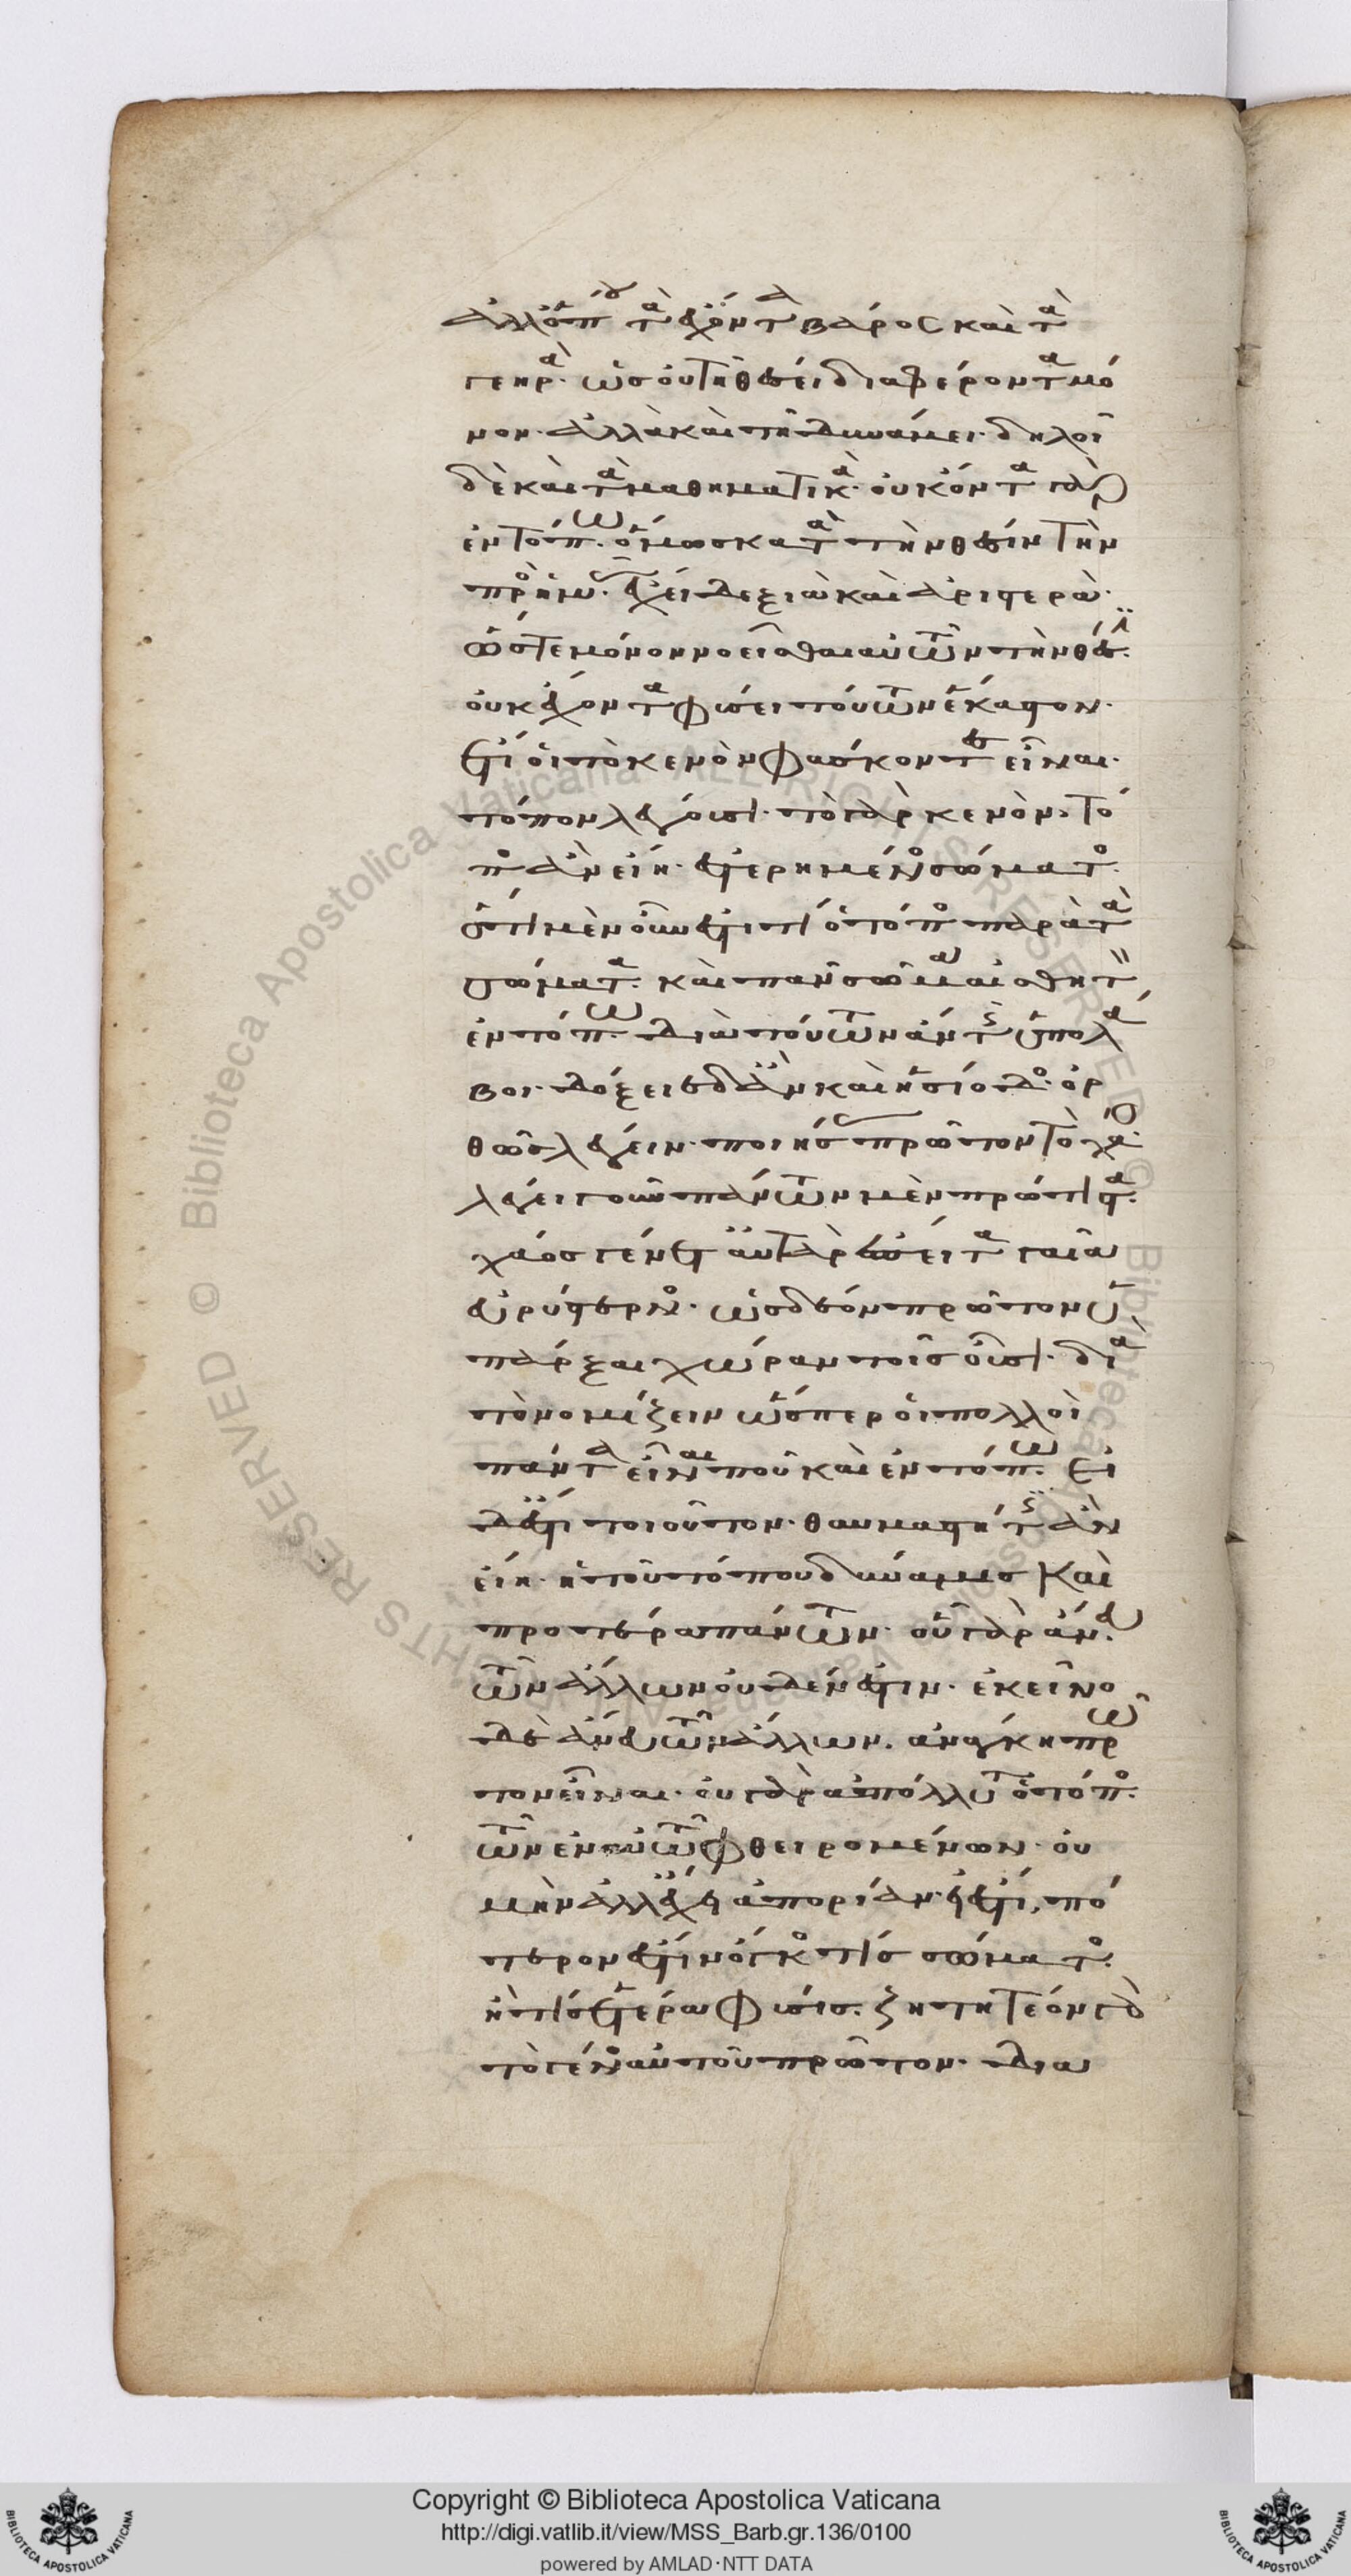 ἀλλ' ὅπου τὰ ἔχοντα βάρος καὶ τὰ
γεηρά. ὡς οὐ τῆ θέσει διαφέροντα μό
νον. ἀλλὰ καὶ τῆ δυνάμει. δηλοῖ
δὲ καὶ τὰ μαθηματικά. οὐκ ὄντα γὰρ
ἐν τόπω. ὅμως κατὰ τὴν θέσιν τὴν
πρὸς ἡμᾶς. ἔχει δεξιὰ καὶ ἀριστερά.
ὥστε μόνον νοεῖσθαι αὐτῶν τὴν θέσιν.
οὐκ ἔχοντα φύσει τούτων ἕκαστον.
ἔτι οἱ τὸ κενὸν φάσκοντες εἶναι.
τόπον λέγουσι. τὸ γὰρ κενὸν, τό
πος ἂν εἴη. ἐστερημένος σώματος.
ὅτι μὲν οὖν ἐστί τι ὁ τόπος παρὰ τὰ
σώματα. καὶ πᾶν σῶμα αἰσθητὸν
ἐν τόπω. διὰ τούτων ἄν τις ὑπολά
βοι. δόξειε δ' ἂν καὶ ἡσίοδος ὀρ
θῶς λέγειν. ποιήσας πρῶτον τὸ χάος.
λέγει γοῦν πάντων μὲν πρώτιστα.
χάος γένετ' αὐτὰρ ἔπειτα γαῖα
εὐρύστερνος. ὡς δέον πρῶτον ὑ
πάρξαι χώραν τοῖς οὖσι. διὰ
τὸ νομίζειν ὥσπερ οἱ πολλοὶ
πάντα εἶναι ποῦ καὶ ἐν τόπω. εἰ
δ' ἐστι τοιοῦτον. θαυμαστή τις ἂν
εἴη. ἡ τοῦ τόπου δύναμις καὶ
προτέρα πάντων. οὗ γὰρ ἄνευ
τῶν ἄλλων οὐδέν ἐστιν. ἐκεῖνο
δὲ ἄνευ τῶν ἄλλων. ἀνάγκη πρῶ
τον εἶναι. οὐ γὰρ ἀπόλλυται ὁ τόπος.
τῶν ἐν αὐτῶ φθειρομένων. οὐ
μὴν ἀλλ' ἔχει ἀπορίαν. εἰ ἔστι, πό
τερον ἐστὶν ὄγκος τίς σώματος.
ἤ τίς ἑτέρα φύσις. ζητητέον γὰρ
τὸ γένος αὐτοῦ πρῶτον. δια
Copyright © Biblioteca Apostolica Vaticana
http://digi.vatlib.it/view/MSS_Barb.gr.136/0100
powered by AMLAD·NTT DATA